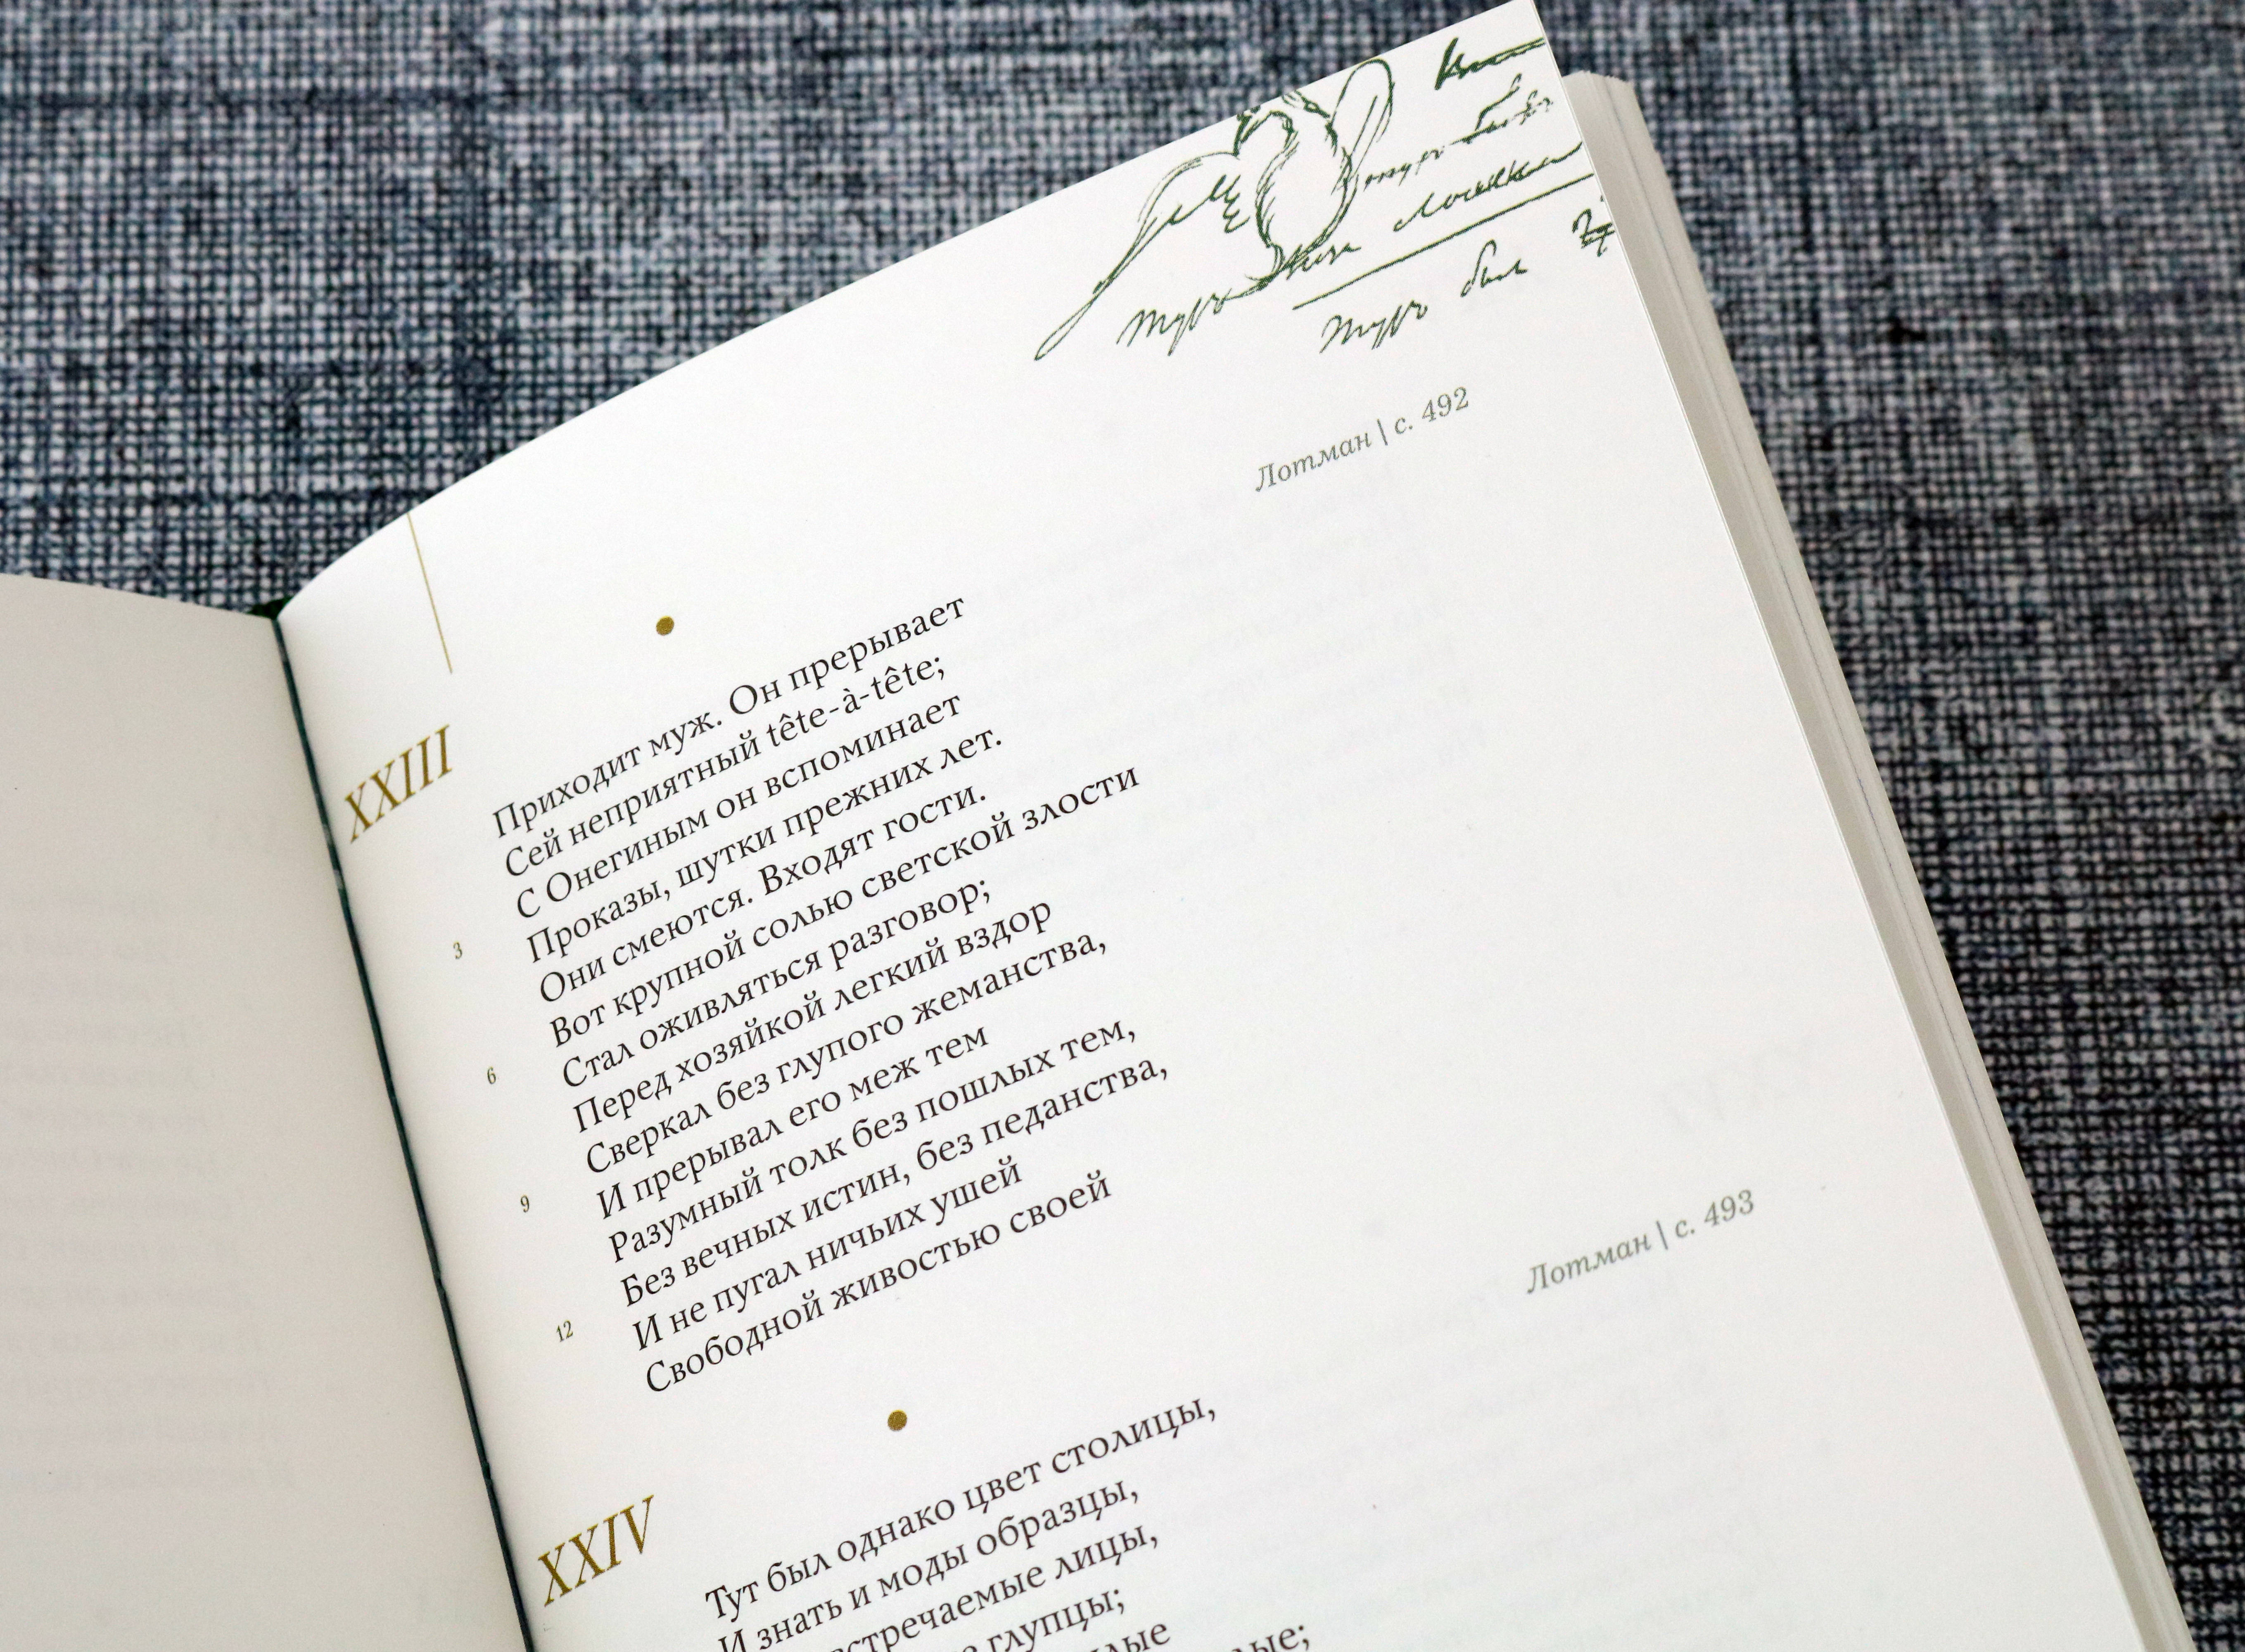 Лотман | с. 492
XXIII
Приходит муж. Он прерывает
Сей неприятный tête-à-tête;
С Онегиным он вспоминает
3 Проказы, шутки прежних лет.
Они смеются. Входят гости.
Вот крупной солью светской злости
6 Стал оживляться разговор;
Перед хозяйкой легкий вздор
Сверкал без глупого жеманства,
9 И прерывал его меж тем
Разумный толк без пошлых тем,
Без вечных истин, без педанства,
12 И не пугал ничьих ушей
Свободной живостью своей
Лотман | с. 493
XXIV
Тут был однако цвет столицы,
И знать и моды образцы,
встречаемые лицы,
глупцы;